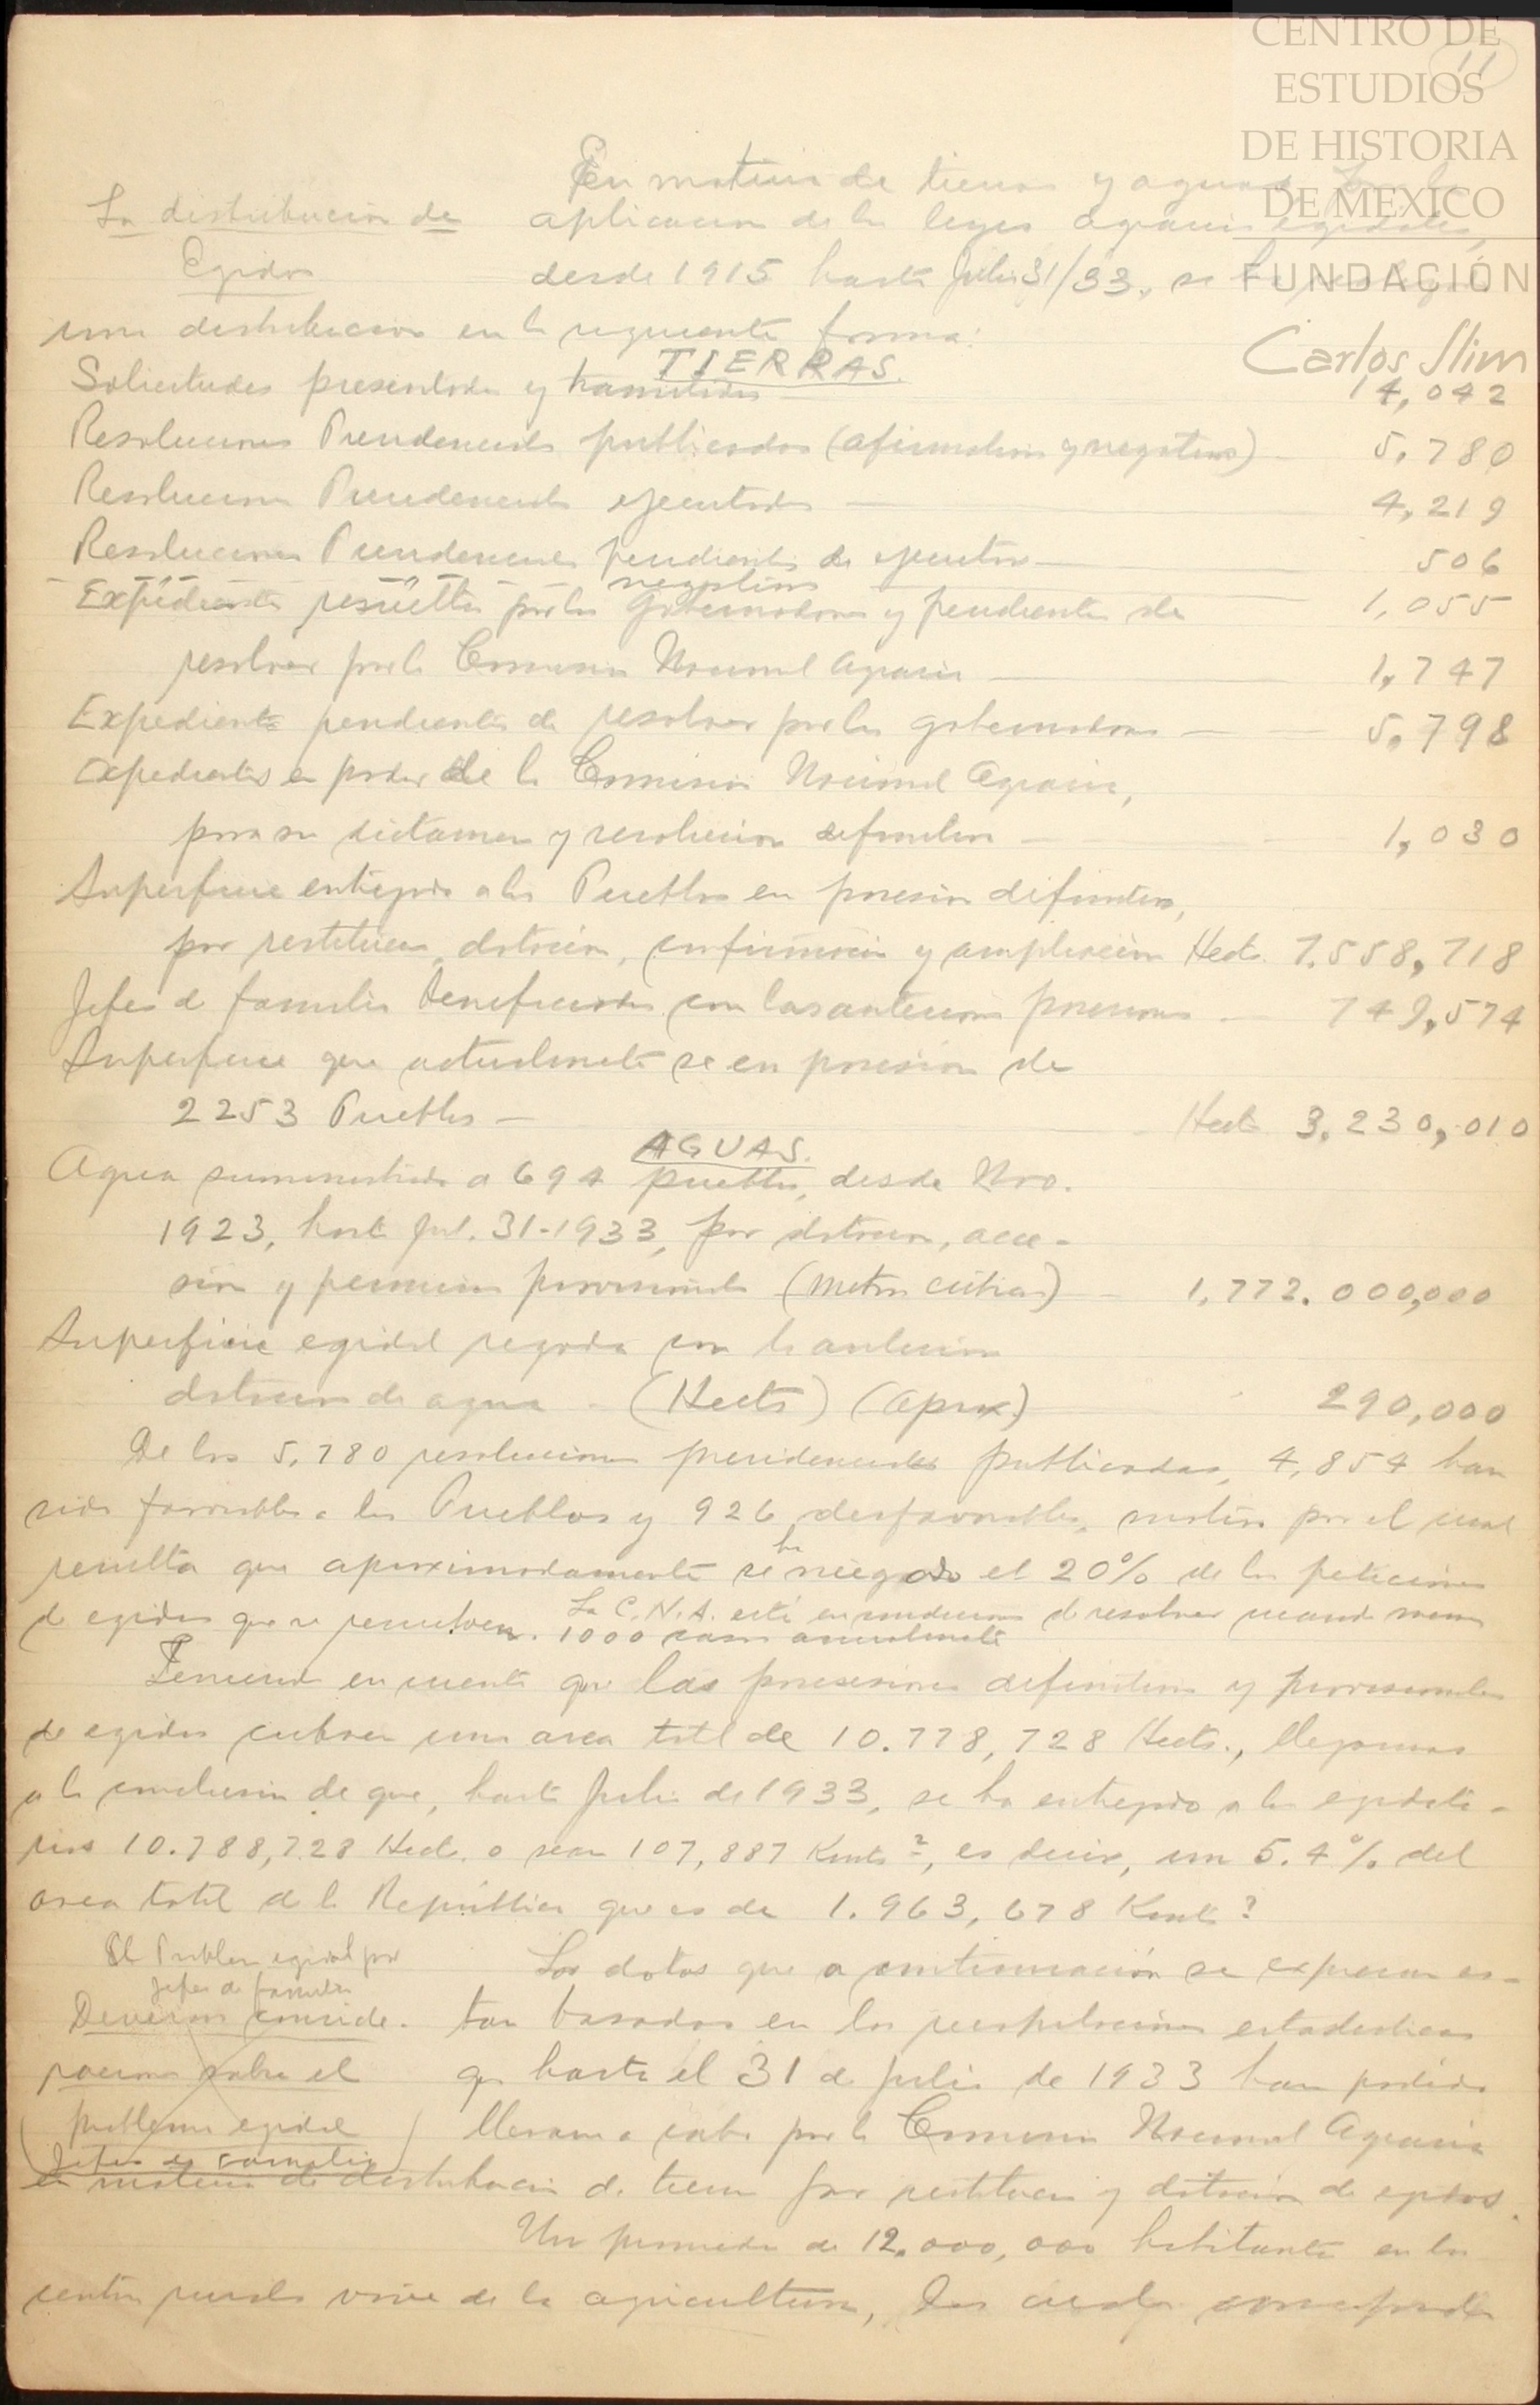 CENTRO DE
ESTUDIOS
DE HISTORIA
DE MEXICO
FUNDACIÓN
Carlos Slim
11
En materia de tierras y aguas
La distribución de
Egidos
aplicacion de las leyes agrarias egidales,
desde 1915 hasta Julio 31/33, se
una distribucion en la siguiente forma:
TIERRAS.
Solicitudes presentadas y tramitadas 14,042
Resoluciones Presidenciales publicadas (afirmativas y negativas) 5.780
Resoluciones Presidenciales ejecutadas 4,219
Resoluciones Presidenciales pendientes de ejecutar 506
" " negativas 1,055
Expedientes resueltos por los Gobernadores y pendientes de
resolver por la Comision Nacional Agraria 1,747
Expedientes pendientes de resolver por los gobernadores 5,798
Expedientes en poder de la Comision Nacional Agraria,
para su dictamen y resolucion definitiva 1,030
Superficie entregada a los Pueblos en posesion difinitiva,
por restitucion, dotación, confirmación y ampliación Hects. 7.558,718
Jefes de familia beneficiados con las anteriores posesiones 749,574
Superficie que actualmente se en posesión de
2253 Pueblos Hects 3,230,010
AGUAS.
Agua suministrada a 694 pueblos, desde Nro.
1923, hasta Jul. 31-1933, por dotacion, acce-
sión y permisos provisionales (metros cúbicos) 1,772.000,000
Superficie egidal regada con la anterior
dotacion de agua (Hects) (aprox.) 290,000
De las 5.780 resoluciones presidenciales publicadas, 4,854 han
sido favorables a los Pueblos y 926 desfavorables, motivo por el cual
resulta que aproximadamente se ha negado el 20% de las peticiones
de egidos que se resuelven. La C.N.A. está en condiciones de resolver cuando menos
1000 casos anualmente
Teniendo en cuenta que las posesiones definitivas y provisionales
de egidos cubren una area total de 10.778,728 Hects., llegamos
a la conclusion de que, hasta Julio de 1933, se ha entregado a los egidata-
rios 10.788,728 Hects. o sean 107,887 Kmts², es decir, un 5.4% del
area total de la República que es de 1.963,678 Kmts²
El Problema egidal por
Jefes de familia
Deveros conside-
raciones sobre el
problema egidal
Jefes de familia
Los datos que a continuación se expresan es-
tan basados en las recopilaciones estadisticas
que hasta el 31 de Julio de 1933 han podido
llevarse a cabo por la Comision Nacional Agraria
en materia de distribucion de tierras por restitucion y dotación de egidos.
Un promedio de 12.000,000 habitantes en los
centros rurales vive de la agricultura, los cuales